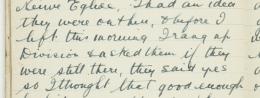 Neuve Eglise, I had an idea
they were out here, & before I
left this morning I rang up
Division & asked them if they
were still there, they said yes
so I thought that good enough